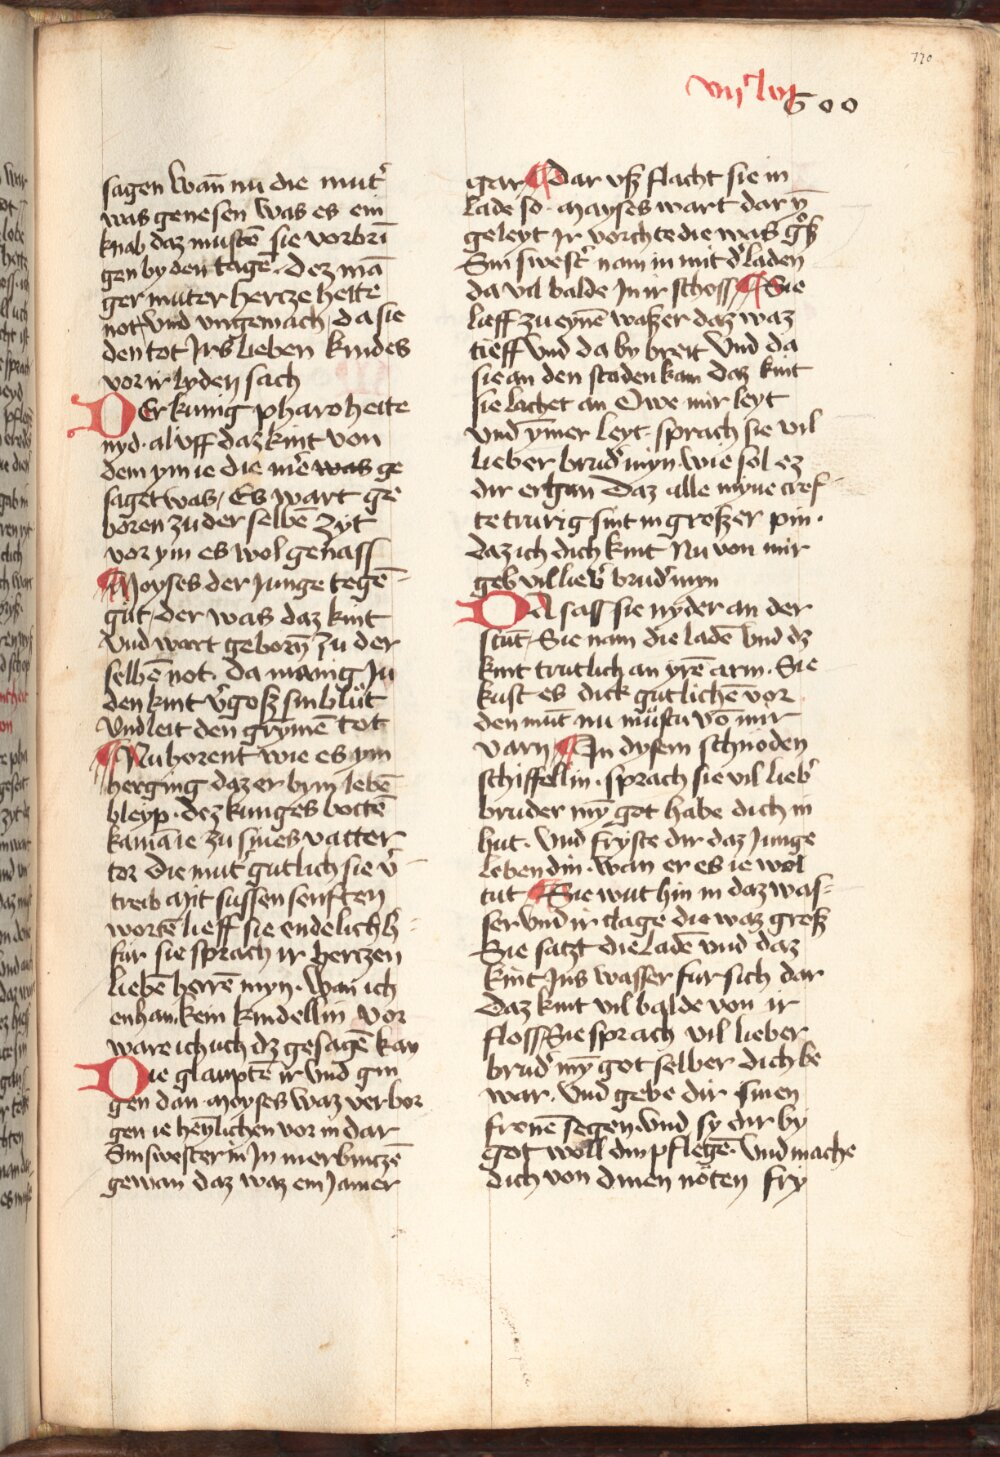 170
vıȷ lvȷ
600
sagen Wan̄ nu die mut᷑
was genesen Was es ein
knab daz mustē sie vorbrī
gen by den tagē. Dez mā
ger muter hertze hette
not, vnd vngemach, da sie
den tot Jrs lieben kindes
vor ir lyden sach
DEr kunig pharo hette
nyd. al vff daz kint von
dem ym ie die mē᷑ was ge
saget was, Es wart ge
boren zu der selbē zyt
vor ym es wol genass
Moyses der Junge tegē
gut, der was daz kint
Vnd wart gebor̄n zu der
selbē not. da manig Ju
den kint v᷑gosz sin blůt
Vnd leit den grȳmē tot
Nu horent wie es ym
herging daz er bym lebē
bleyp. dez kunges bottē
kamā ie zu sines vatter
tor Die mut᷑ gutlich sie v᷑
treib mit sussen senften
wortē lieff sie endelich h
fúr sie sprach ir hertzen
liebē herrē myn. Wan ich
enhan kein kindellin vor
ware ich uch dz gesagē kan
Die glauptē ir vnd gin
gen dan Moyses waz verbor
gen ie hēmlichen vor in dar
Sin swester in Jn mer bintzē
gewan daz waz ein Jamer
gar Dar vsz flacht sie in
lade so. Moyses wart dar ȳ
geleyt Jr vorchte die was g᷑sz
Sin swest᷑ nam in mit d᷑ laden
da vil balde Jn ir schoss Sie
lieff zu eynē waszer daz waz
tieff Vnd da by breit Vnd da
sie an den staden kam Daz kint
sie lachet an Owe mir leyt
vnd ȳmer leyt. sprach sie vil
lieber brud᷑ myn. wie sol ez
dir ergan Daz alle myne cref
te trurig sint in groszer pin.
Daz ich dich kint Nu von mir
geb vil lieb᷑ brud᷑ myn
DA sass sie nyder an der
stūt, Sie nam die ladē Vnd dz
kint trutlich an yrē arm. Sie
kust es dick gutlichē vor
den mūt nu můstu vō mir
varn Jn dysem schnoden
schiffellin. sprach sie vil lieb᷑
bruder mȳ got habe dich in
hut. Vnd fryste dir daz Junge
leben din. Wan er es ie wol
tut Sie wut hin in daz was=
ser vnd ir clage die waz grosz
Sie satzt die ladē vnd daz
kint Jns wasser fur sich dar
Daz kint vil balde von ir
floss Sie sprach vil lieber
brud᷑ mȳ got selber dich be
war. Vnd gebe dir sinen
fronē segen. Vnd sy dir by
got woll din pflegē. Vnd mache
dich von dinen nöten fry